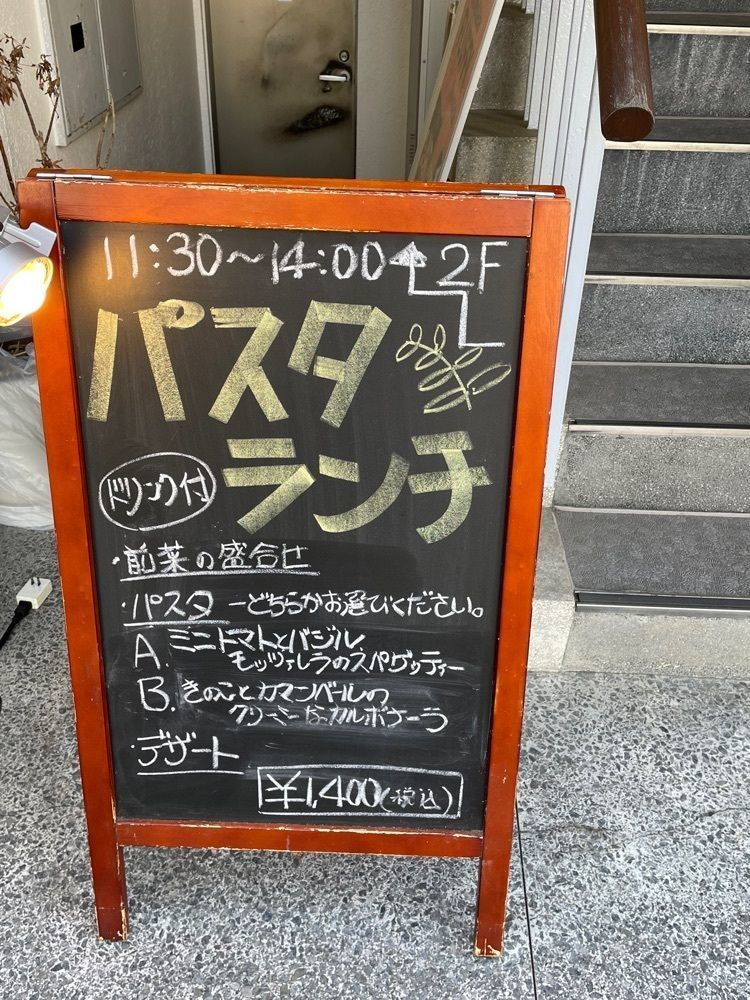 11:30〜14:00 2F
パスタ
ランチ
ドリンク付
・前菜の盛合せ
・パスタ ーどちらかお選びください。
A. ミニトマトとバジル、
モッツァレラのスパゲッティー
B. きのことカマンベールの
クリーミーなカルボナーラ
・デザート
¥1,400(税込)